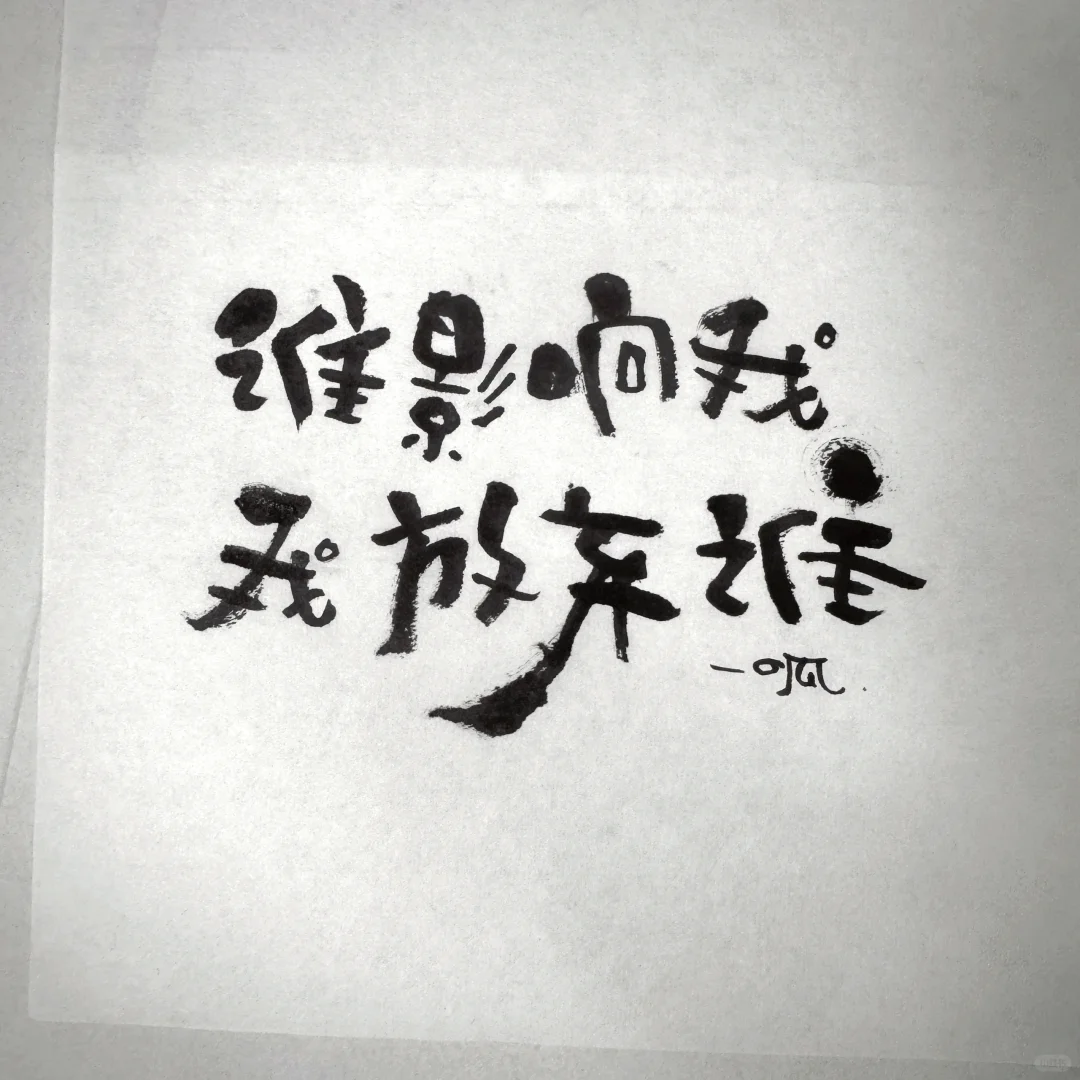 谁影响我
我放弃谁
一呱